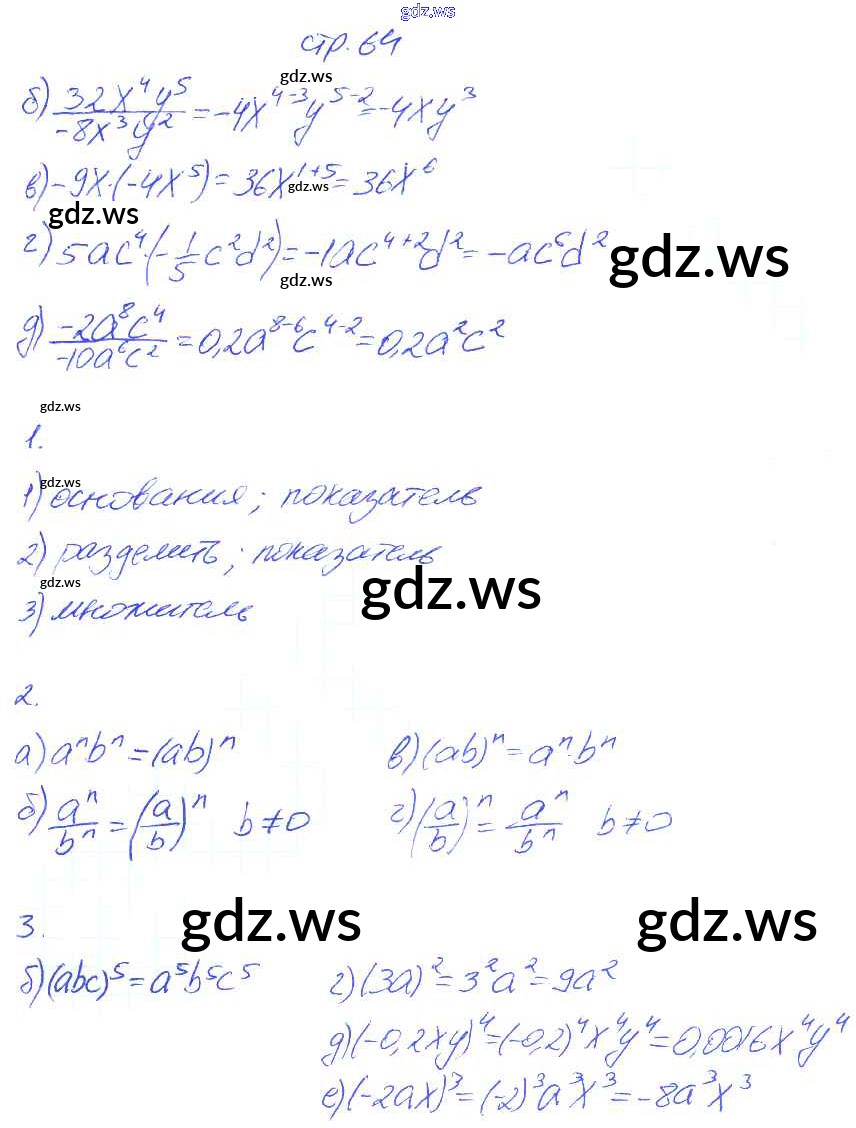 gdz.ws
стр. 64
gdz.ws
б) 32x⁴y⁵/-8x³y² = -4x⁴⁻³y⁵⁻² = -4xy³
в) -9x·(-4x⁵) = 36x¹⁺⁵ = 36x⁶
gdz.ws
gdz.ws
г) 5ac⁴·(-1/5c²d²) = -1ac⁴⁺²d² = -ac⁶d²
gdz.ws
gdz.ws
д) -2a⁸c⁴/-10a⁶c² = 0,2a⁸⁻⁶c⁴⁻² = 0,2a²c²
gdz.ws
1.
gdz.ws
1) основания; показатель
2) разделить; показатель
gdz.ws
gdz.ws
3) множитель
2.
а) aⁿbⁿ = (ab)ⁿ в) (ab)ⁿ = aⁿ·bⁿ
б) aⁿ/bⁿ = (a/b)ⁿ b≠0 г) (a/b)ⁿ = aⁿ/bⁿ b≠0
gdz.ws
gdz.ws
3.
б) (abc)⁵ = a⁵b⁵c⁵ г) (3a)² = 3²a² = 9a²
д) (-0,2xy)⁴ = (-0,2)⁴x⁴y⁴ = 0,0016x⁴y⁴
е) (-2ax)³ = (-2)³a³x³ = -8a³x³